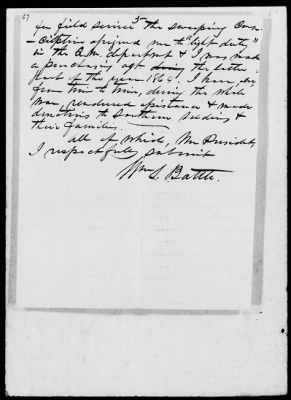 67
5
for field service the sweeping Con-
-scription assigned me to "light duty"
in the Q.M. department & I was made
a purchasing agt during the latter
part of the year 1864. I have also
from time to time, during the while
war, rendered assistance & made
donations to Southern soldiers &
their families.
all of which, Mr President,
I respectfully submit
Wm S. Battle.